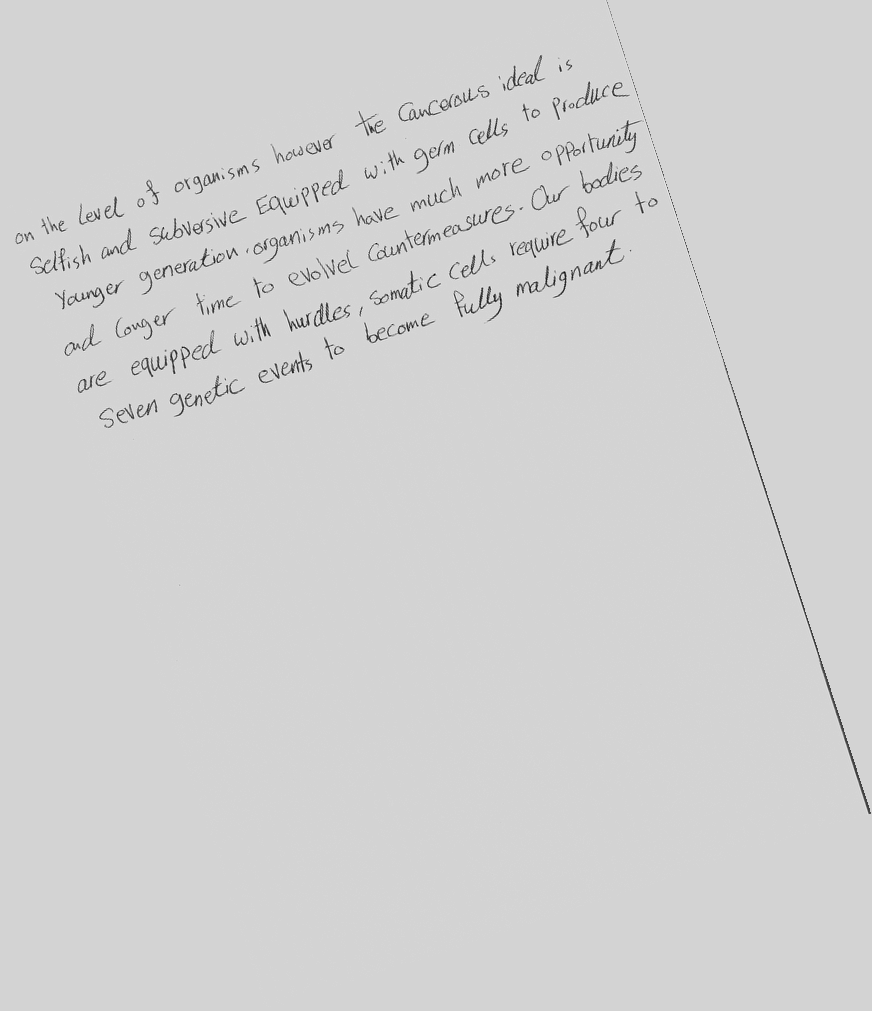 on the level of organisms however the Cancerous ideal is
Selfish and subversive Equipped with germ cells to produce
Younger generation. organisms have much more opportunity
and longer time to evolvel Countermeasures. Our bodies
are equipped with hurdles, somatic cells require four to
Seven genetic events to become fully malignant.